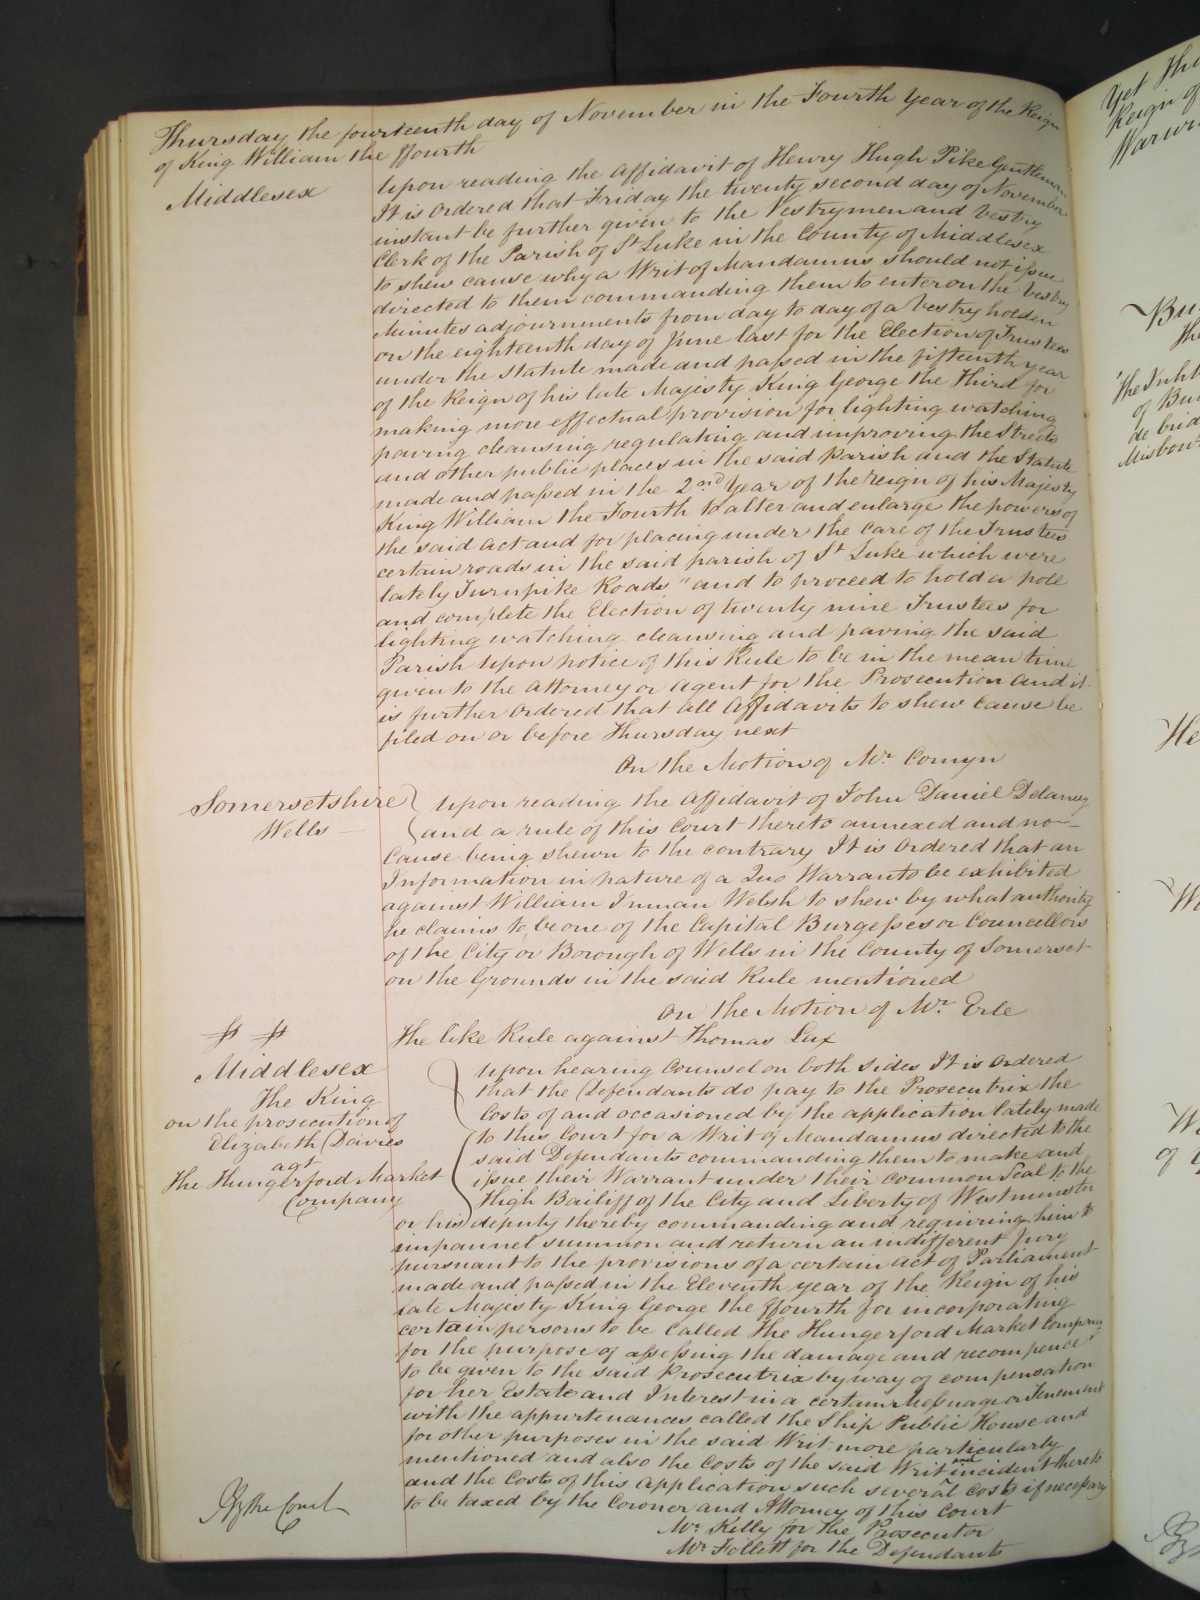 Thursday the fourteenth day of November in the Fourth Year of the Reign
of King William the ffourth
Middlesex
Upon reading the affidavit of Henry Hugh Pike Gentleman
It is Ordered that Friday the twenty second day of November
instant be further given to the Vestrymen and Vestry
Clerk of the Parish of St Luke in the County of Middlesex
to shew cause why a Writ of Mandamus should not issue
directed to them commanding them to enter on the Vestry
Minutes adjournments from day to day of a Vestry holden
on the eighteenth day of June last for the Election of Trustees
under the Statute made and passed in the fifteenth year
of the Reign of his late Majesty King George the Third for
making more effectual provision for lighting watching
paving cleansing regulating and improving the Streets
and other public places in the said Parish and the Statute
made and passed in the 2nd Year of the reign of his Majesty
King William the Fourth to alter and enlarge the powers of
the said act and for placing under the care of the Trustees
certain roads in the said parish of St Luke which were
lately Turnpike Roads" and to proceed to hold a poll
and complete the Election of twenty nine Trustees for
lighting watching cleansing and paving the said
Parish Upon notice of this Rule to be in the mean time
given to the Attorney or agent for the Prosecution and it
is further Ordered that all Affidavits to shew cause be
filed on or before Thursday next
On the Motion of Mr. Comyn
Somersetshire
Wells
Upon reading the affidavit of John Daniel Delaney
and a rule of this Court thereto annexed and no
Cause being shewn to the contrary It is Ordered that an
Information in nature of a Quo Warranto be exhibited
against William Inman Welsh to shew by what authority
he claims to be one of the Capital Burgesses or Councellors
of the City or Borough of Wells in the County of Somerset
on the Grounds in the said Rule mentioned
On the Motion of Mr. Erle
The like Rule against Thomas Lux
Middlesex
The King
on the prosecution of
Elizabeth Davies
agt
The Hungerford Market
Company
Upon hearing Counsel on both sides It is Ordered
that the Defendants do pay to the Prosecutrix the
Costs of and occasioned by the application lately made
to this Court for a Writ of Mandamus directed to the
said Defendants commanding them to make and
issue their Warrant under their common Seal to the
High Bailiff of the City and Liberty of Westminster
or his deputy thereby commanding and requiring him to
impannel summon and return an indifferent Jury
pursuant to the provisions of a certain act of Parliament
made and passed in the Eleventh year of the Reign of his
late Majesty King George the ffourth for incorporating
certain persons to be called The Hungerford Market Company
for the purpose of assessing the damage and recompence
to be given to the said Prosecutrix by way of compensation
for her Estate and Interest in a certain Messuage or Tenement
with the appurtenances called the Ship Public House and
for other purposes in the said Writ more particularly
mentioned and also the Costs of the said Writ and incident thereto
and the Costs of this application such several Costs if necessary
to be taxed by the Coroner and Attorney of this Court
Mr. Kelly for the Prosecutor
Mr Follett for the Defendants
By the Court
Yet Thu
Reign of
Warwi
Bu
The Inh
of Bu
de bri
Misbour
He
W
W
of
By